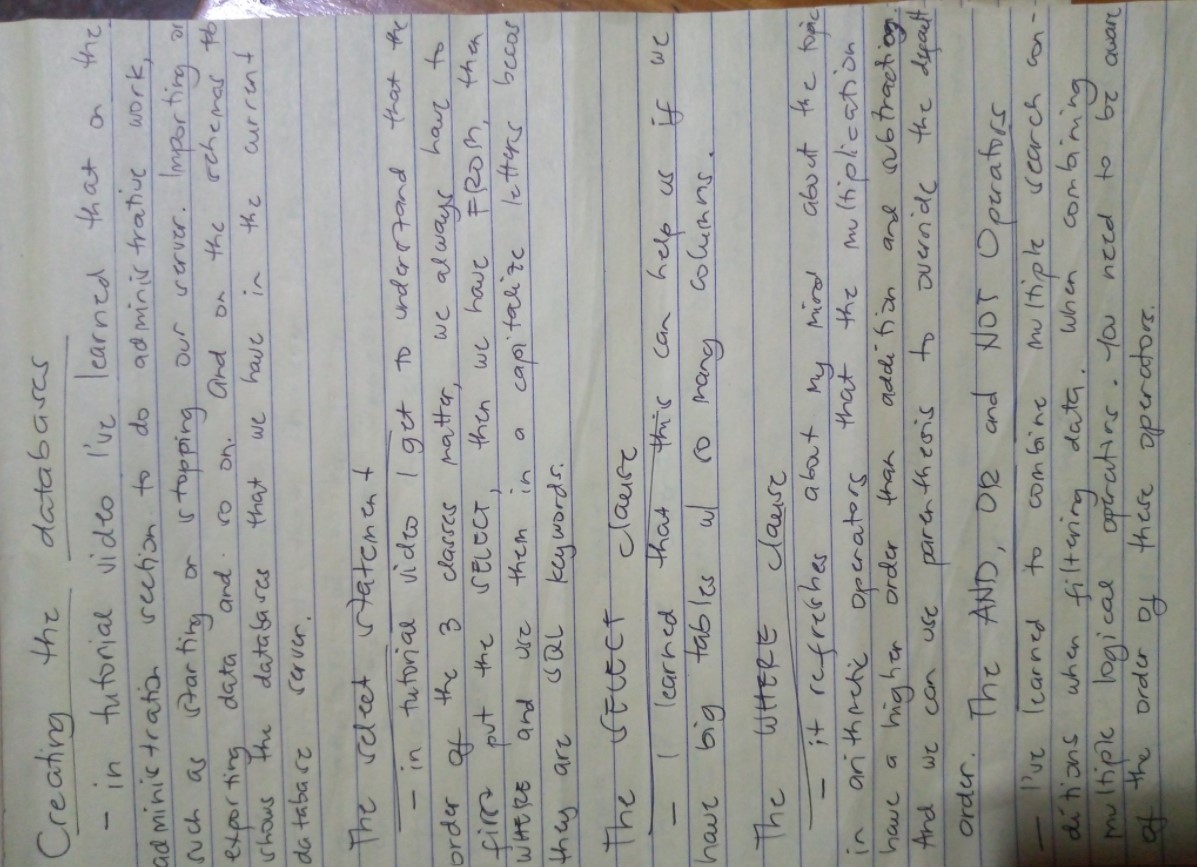 Creating the databases
- in tutorial video I've learned that on the
administration section to do administrative work,
such as starting or stopping our server. Importing or
exporting data and so on. And on the schemas tb
shows the databases that we have in the current
database server.
The select statement
- in tutorial video I get to understand that the
order of the 3 clauses matter, we always have to
first put the SELECT, then we have FROM, then
WHERE and use them in a capitalize letters becos
they are SQL keywords.
The SELECT clause
- I learned that this can help us if we
have big tables w/ so many columns.
The WHERE clause
- it refreshes about my mind about the topic
in arithmetic operators that the multiplication
have a higher order than addition and subtracting.
And we can use parenthesis to override the default
order.
The AND, OR and NOT Operators
- I've learned to combine multiple search con-
ditions when filtering data. When combining
multiple logical operators. You need to be aware
of the order of these operators.